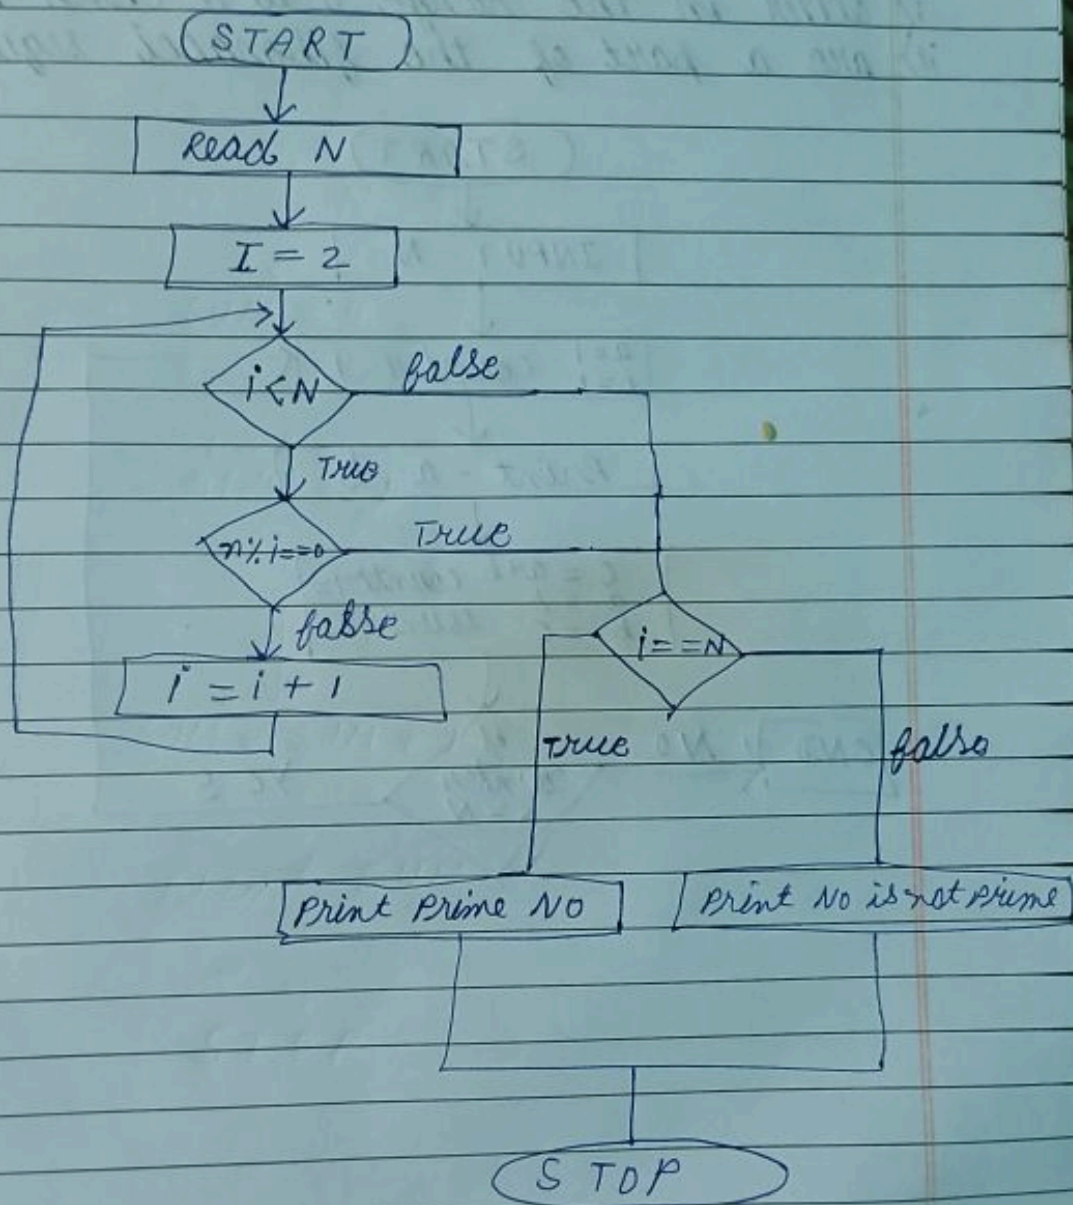 START
Read N
I = 2
i < N
false
True
n % i == 0
True
false
i = i + 1
i == N
True
false
Print Prime NO
Print No is not prime
STOP